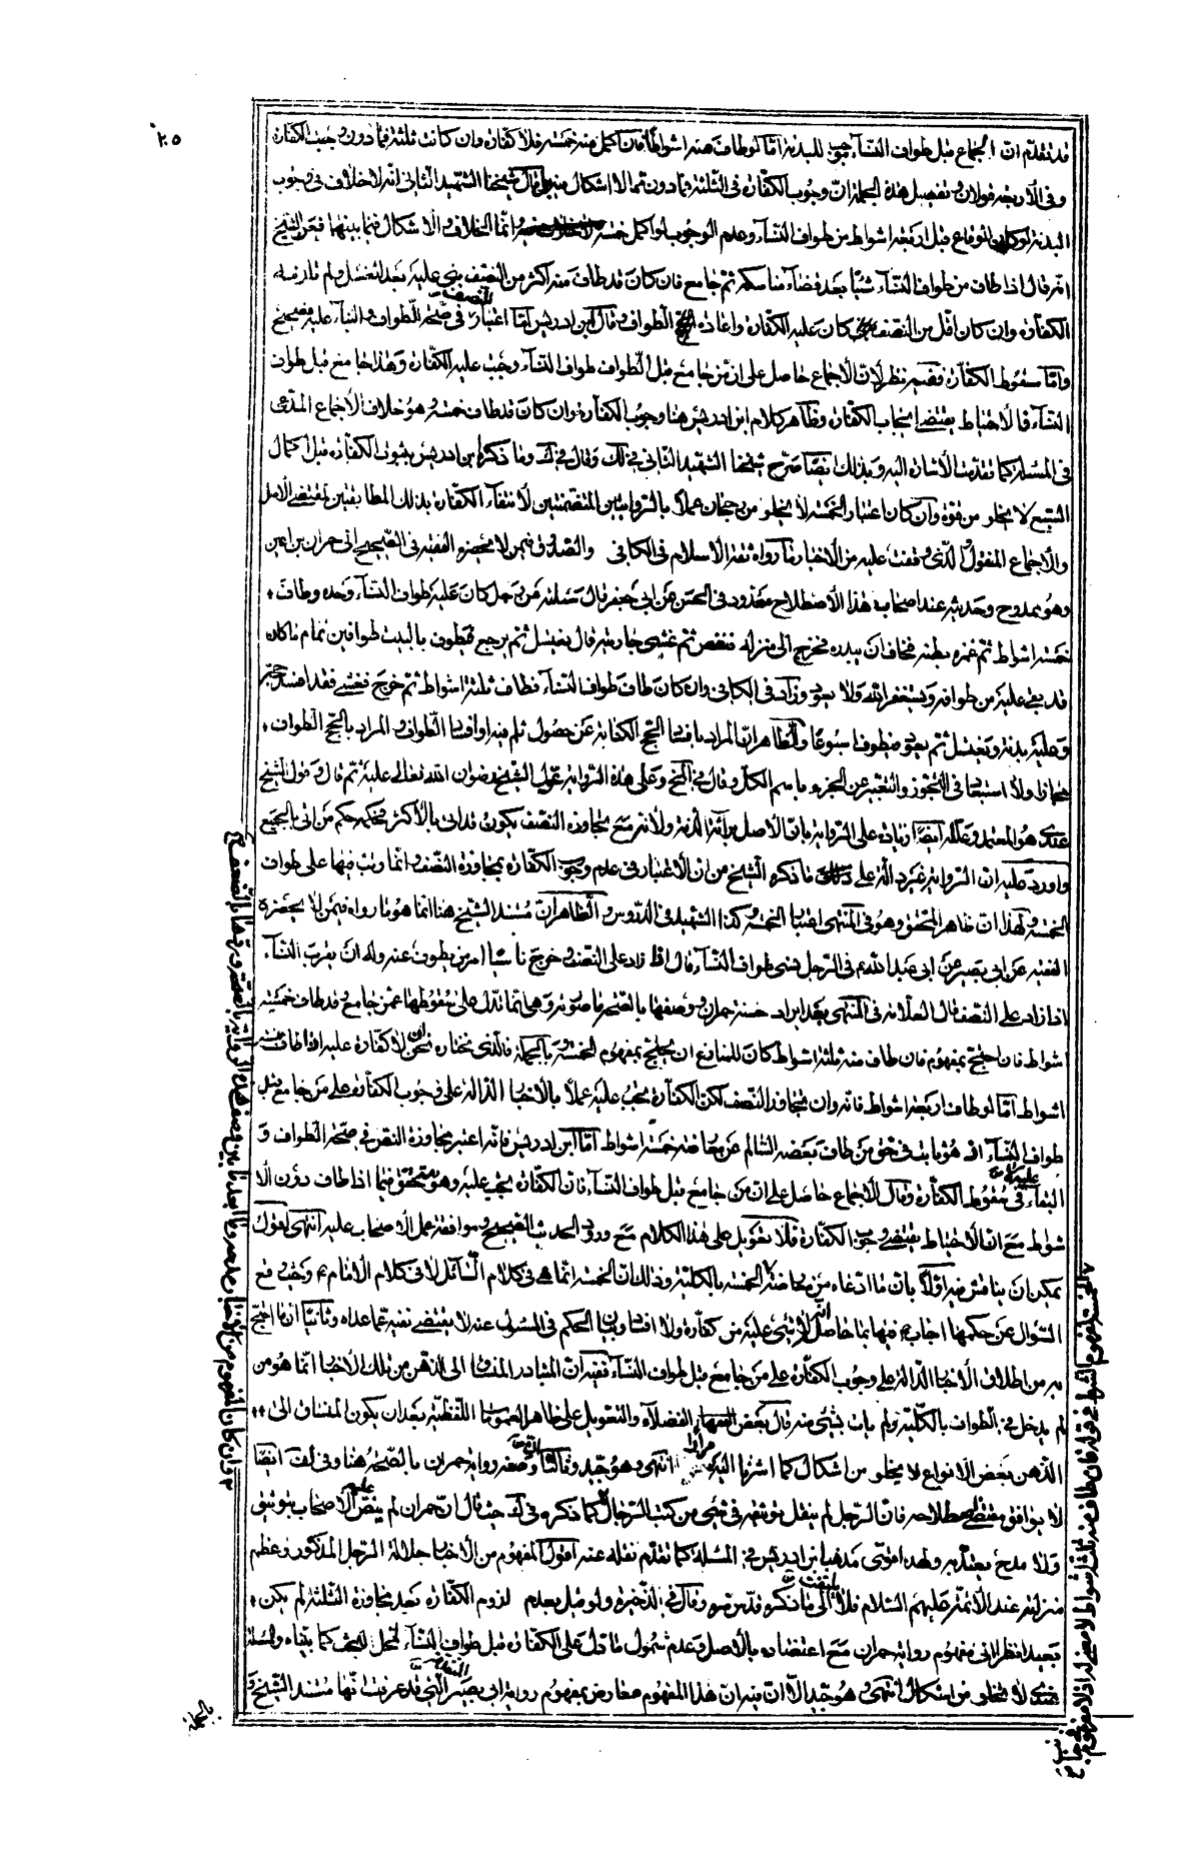 ٢٠٥
قد تقدم ان الجماع قبل طواف النساء موجب للبدنة اما لو طاف منه اشواطا فان اكمل منه خمسة فلا كفارة وان كانت ثلثة فما دون وجبت الكفارة
وفى الأربعة قولان وتفصيل هذه الجملة ان وجوب الكفارة فى الثلثة فما دون مما لا اشكال فيه بل قال شيخنا الشهيد الثانى انه لا خلاف فى وجوب
البدنة لو كان الوقاع قبل اربعة اشواط من طواف النساء وعدم الوجوب لو اكمل خمسة وانما الخلاف والاشكال فيما بينهما فعن الشيخ
انه قال اذا طاف من طواف النساء شيئا بعد قضاء مناسكه ثم جامع فان كان قد طاف منه اكثر من النصف بنى عليه بعد الغسل ولم تلزمه
الكفارة وان كان اقل من النصف كان عليه الكفارة واعادة الطواف وقال ابن ادريس اما اعتبار النصف فى صحة الطواف والبناء عليه فصحيح
واما سقوط الكفارة ففيه نظر لان الاجماع حاصل على ان من جامع قبل الطواف طواف النساء وجبت عليه الكفارة وهذا جامع قبل طواف
النساء فالاحتياط يقتضى ايجاب الكفارة وظاهر كلام ابن ادريس هنا وجوب الكفارة وان كان قد طاف خمسة وهو خلاف الاجماع المدعى
فى المسئلة كما تقدمت الاشارة اليه وبذلك ايضا صرح شيخنا الشهيد الثانى فى لك وقال فى ك وما ذكره ابن ادريس بثبوت الكفارة قبل اكمال
السبع لا يخلو من قوة وان كان اعتبار الخمسة لا يخلو من رجحان عملا بالروايتين المتضمنتين لانتفاء الكفارة بذلك المطابقتين لمقتضى الاصل
والاجماع المنقول والذى وقفت عليه من الاخبار ما رواه ثقة الاسلام فى الكافى والصدوق فيمن لا يحضره الفقيه فى الصحيح الى حمران بن اعين
وهو ممدوح وحديثه عند اصحاب هذا الاصطلاح معدود فى الحسن عن ابى جعفر قال سئلته عن رجل كان عليه طواف النساء وحده وطاف
خمسة اشواط ثم غمزه بطنه فخاف ان يبدره فخرج الى منزله فنفض ثم غشى جاريته قال يغتسل ثم يرجع فيطوف بالبيت طوافين تمام ما كان
قد بقى عليه من طوافه ويستغفر الله ولا يعود وزاد فى الكافى وان كان طاف طواف النساء فطاف ثلثة اشواط ثم خرج فغشى فقد افسد حجه
وعليه بدنة ويغتسل ثم يعود فيطوف اسبوعا والظاهر ان المراد بافساد الحج الكناية عن حصول ثلم فيه او افساد الطواف والمراد بالحج الطواف
مجازا ولا استبعاد فى التجوز والتعبير عن الجزء باسم الكل وقال فى الخ وعلى هذه الرواية عول الشيخ رضوان الله تعالى عليه ثم قال وقول الشيخ
عندى هو المعتمد وعلله ايضا زيادة على الرواية بان الاصل براءة الذمة ولانه مع تجاوزه النصف يكون قد اتى بالاكثر فحكمه حكم من اتى بالجميع
واورد عليه ان الرواية غير دالة على ما ذكره الشيخ من ان الاعتبار فى عدم وجوب الكفارة بمجاوزة النصف وانما رتب فيها على طواف
الخمسة ولهذا ان ظاهر المحقق وهو فى المنتهى اعتبار الخمسة وكذا الشهيد فى الدروس والظاهر ان مستند الشيخ هنا انما هو ما رواه فيمن لا يحضره
الفقيه عن ابى بصير عن ابى عبد الله فى الرجل نسى طواف النساء قال اذا زاد على النصف وخرج ناسيا امر من يطوف عنه وله ان يقرب النساء
اذا زاد على النصف قال العلامة فى المنتهى بعد ايراد حسنة حمران ووصفها بالصحة ما صورته وهى انما تدل على سقوطها عمن جامع وقد طاف خمسة
اشواط فان احتج بمفهوم فان طاف منه ثلثة اشواط كان للمنازع ان يحتج بمفهوم الخمسة وبالجملة فالذى نختاره نحن انه لا كفارة عليه اذا طاف خمسة
اشواط اما لو طاف اربعة اشواط فانه وان تجاوز النصف لكن الكفارة تجب عليه عملا بالاخبار الدالة على وجوب الكفارة على من جامع قبل
طواف النساء اذ هو ثابت فى حق من طاف بعضه السالم عن معارضة خمسة اشواط اما ابن ادريس فانه اعتبر مجاوزة النصف فى صحة الطواف و
البناء عليه لا فى سقوط الكفارة وقال الاجماع حاصل على ان من جامع قبل طواف النساء فان الكفارة تجب عليه وهو متحقق فيما اذا طاف دون الا
شواط مع ان الاحتياط يقتضى وجوب الكفارة فلا تعويل على هذا الكلام مع ورود الحديث الصحيح وموافقة عمل الاصحاب عليه انتهى اقول
يمكن ان يناقش فيه اولا بان ما ادعاه من معارضة الخمسة بالكلية وذلك ان الخمسة انما هى فى كلام السائل لا فى كلام الامام وحيث وقع
السؤال عن حكمها اجاب فيها بما حاصل انه لا شئ عليه من كفارة ولا افساد وبيان الحكم فى المسئول عنه لا يقتضى نفيه عما عداه وثانيا ان ما احتج
به من اطلاق الاخبار الدالة على وجوب الكفارة على من جامع قبل طواف النساء ففيه ان المتبادر المنساق الى الذهن من تلك الاخبار انما هو من
لم يدخل فى الطواف بالكلية ولم يات بشئ منه قال بعض الفضلاء والتعويل على ظاهر العمومات اللفظية بعد ان يكون المنساق الى
الذهن بعض الانواع لا يخلو من اشكال كما اشرنا اليه مرارا انتهى وهو جيد وثالثا ان وصفه رواية حمران بالصحة هنا وفى لف ايضا
لا يوافق مقتضى اصطلاحه فان الرجل لم ينقل توثيقه فى شئ من كتب الرجال كما ذكره فى ك حيث قال ان حمران لم ينص عليه الاصحاب بتوثيق
ولا مدح يعتد به ولهذا قوى مذهب ابن ادريس فى المسئلة كما تقدم نقله عنه اقول المفهوم من الاخبار جلالة الرجل المذكور وعظم
منزلته عند الائمة عليهم السلام فلا يلتفت الى ما ذكره قدس سره وقال فى الذخيرة ولو قيل بعدم لزوم الكفارة بعد مجاوزة الثلثة لم يكن
بعيدا نظرا الى مفهوم رواية حمران مع اعتضاده بالاصل وعدم شمول ما دل على الكفارة قبل طواف النساء لمحل البحث كما بيناه والمسئلة
عندى لا تخلو من اشكال انتهى وهو جيد الا ان فيه ان هذا المفهوم معارض بمفهوم رواية ابى بصير المتقدمة التى قد عرفت انها مستند الشيخ و
بالجملة